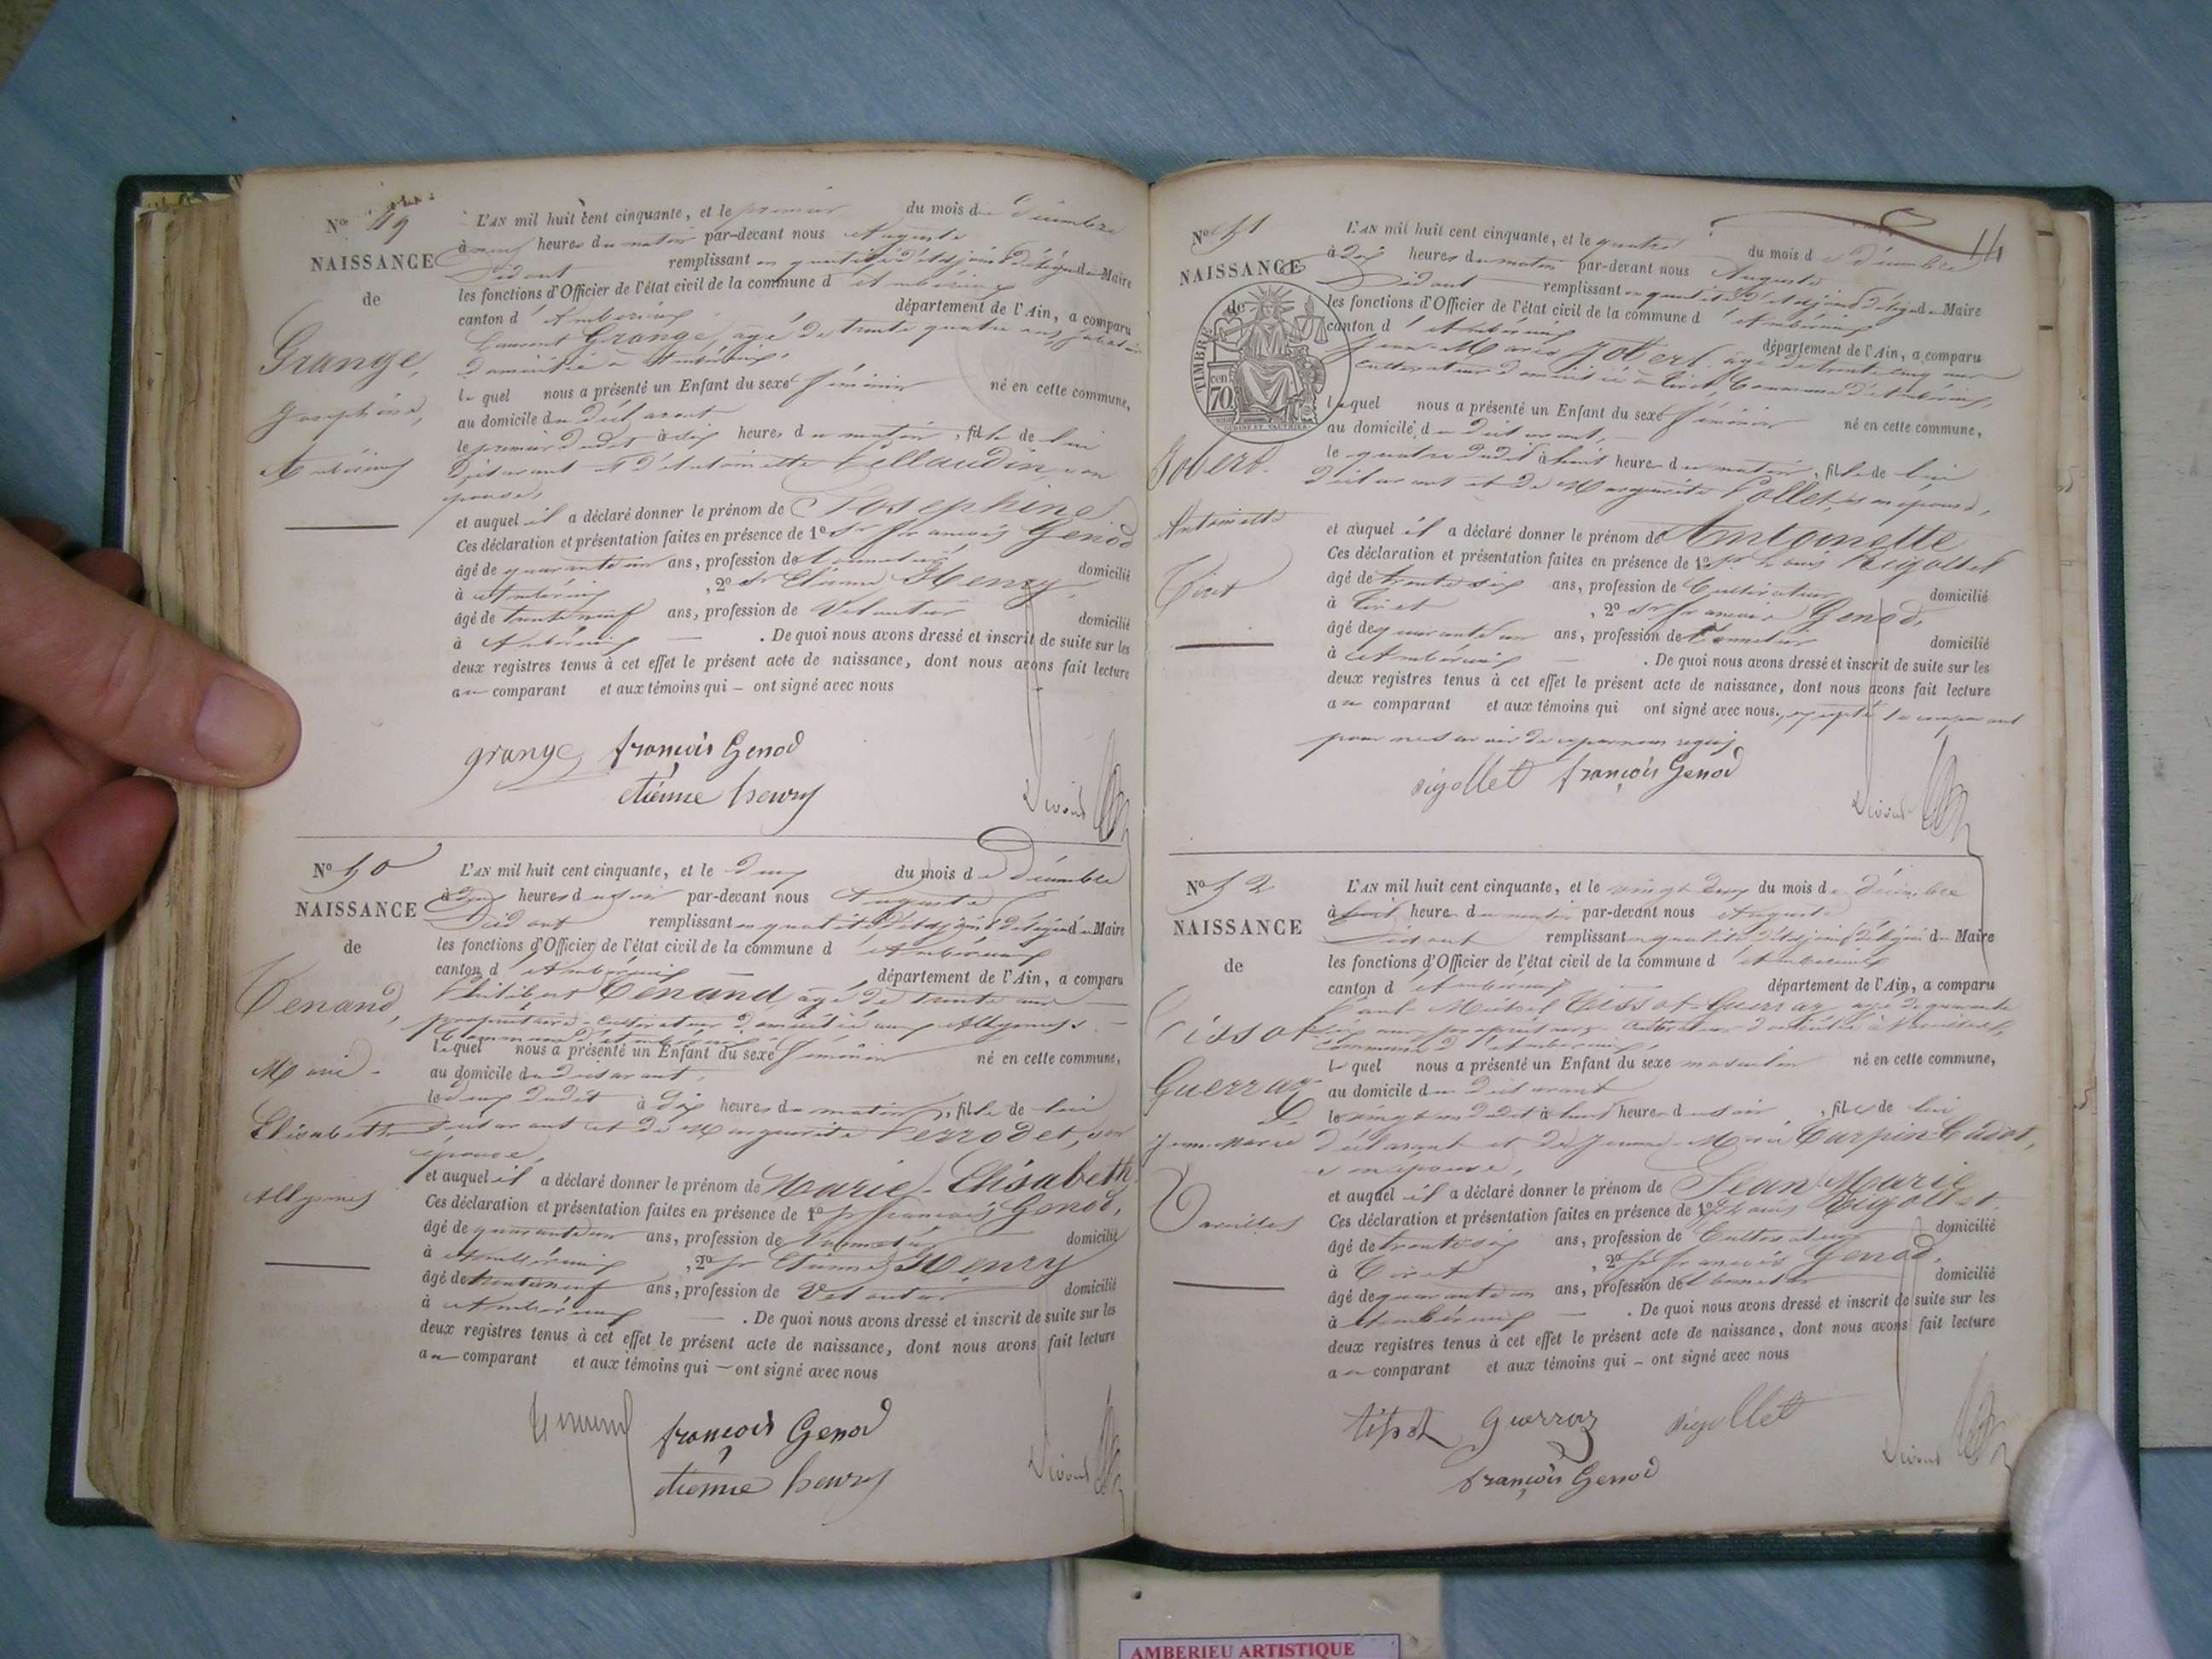 N° 49
NAISSANCE
de
Grange,
Josephine,
Ambérieux
L'AN mil huit cent cinquante, et le premier du mois de Décembre
à neuf heures du matin par-devant nous Auguste
Didout remplissant en qualité d'adjoint délégué du Maire
les fonctions d'Officier de l'état civil de la commune d'Ambérieux
canton d'Ambérieux département de l'Ain, a comparu
Laurent Grange, âgé de trente quatre ans,
domicilié à Ambérieux,
lequel nous a présenté un Enfant du sexe féminin né en cette commune,
au domicile du déclarant
le premier dudit à six heures du matin, fille de lui
déclarant et d'Antoinette Vellaudin, son
épouse,
et auquel il a déclaré donner le prénom de Josephine
Ces déclaration et présentation faites en présence de 1° Sr françois Genod
âgé de quarante un ans, profession de domicilié
à Ambérieux, 2° Sr Etienne Henry,
âgé de trente neuf ans, profession de domicilié
à Ambérieux — . De quoi nous avons dressé et inscrit de suite sur les
deux registres tenus à cet effet le présent acte de naissance, dont nous avons fait lecture
au comparant et aux témoins qui — ont signé avec nous
grange françois Genod
etienne henry
N° 50
NAISSANCE
de
Tenand,
Marie-
Elisabeth
Allymes
L'AN mil huit cent cinquante, et le deux du mois de Décembre
à deux heures du soir par-devant nous Auguste
Didout remplissant en qualité d'adjoint délégué du Maire
les fonctions d'Officier de l'état civil de la commune d'Ambérieux
canton d'Ambérieux — département de l'Ain, a comparu
Philibert Tenand, âgé de trente ans
propriétaire-cultivateur domicilié aux Allymes, —
Commune d'Ambérieux,
lequel nous a présenté un Enfant du sexe féminin né en cette commune,
au domicile du déclarant,
le deux dudit à dix heures du matin, fille de lui
déclarant et de Marguerite Verrodet, son
épouse,
et auquel il a déclaré donner le prénom de Marie-Elisabeth
Ces déclaration et présentation faites en présence de 1° Sr françois Genod,
âgé de quarante un ans, profession de domicilié
à Ambérieux, 2° Sr Etienne Henry
âgé de trente neuf ans, profession de domicilié
à Ambérieux — . De quoi nous avons dressé et inscrit de suite sur les
deux registres tenus à cet effet le présent acte de naissance, dont nous avons fait lecture
au comparant et aux témoins qui — ont signé avec nous
Tenand françois Genod
etienne henry
14
N° 51
NAISSANCE
de
TIMBRE
70 cen.
Jobert.
Antoinette
Tiret
L'AN mil huit cent cinquante, et le quatre du mois de Décembre
à dix heures du matin par-devant nous Auguste
Didout remplissant en qualité d'adjoint délégué du Maire
les fonctions d'Officier de l'état civil de la commune d'Ambérieux
canton d'Ambérieux département de l'Ain, a comparu
Jean-Marie Jobert, âgé de trente cinq ans
cultivateur domicilié à Tiret, Commune d'Ambérieux,
lequel nous a présenté un Enfant du sexe féminin né en cette commune,
au domicile du déclarant,
le quatre dudit à huit heures du matin, fille de lui
déclarant et de Marguerite Pollet, son épouse,
et auquel il a déclaré donner le prénom de Antoinette
Ces déclaration et présentation faites en présence de 1° Sr Louis Rigollet
âgé de trente six ans, profession de Cultivateur domicilié
à Tiret, 2° Sr françois Genod,
âgé de quarante un ans, profession de domicilié
à Ambérieux — . De quoi nous avons dressé et inscrit de suite sur les
deux registres tenus à cet effet le présent acte de naissance, dont nous avons fait lecture
au comparant et aux témoins qui ont signé avec nous, excepté le comparant
pour ne savoir de ce par nous requis
rigollet françois Genod
N° 52
NAISSANCE
de
Tissot
Guerraz
Jean Marie
Vareilles
L'AN mil huit cent cinquante, et le vingt deux du mois de Décembre
à huit heures du matin par-devant nous Auguste
Didout remplissant en qualité d'adjoint délégué du Maire
les fonctions d'Officier de l'état civil de la commune d'Ambérieux
canton d'Ambérieux département de l'Ain, a comparu
Paul-Michel Tissot-Guerraz, âgé de quarante
six ans, propriétaire-cultivateur domicilié à Vareilles,
commune d'Ambérieux,
lequel nous a présenté un Enfant du sexe masculin né en cette commune,
au domicile du déclarant
le vingt un dudit à huit heures du soir, fils de lui
déclarant et de Jeanne-Marie Curpin Cadot,
son épouse,
et auquel il a déclaré donner le prénom de Jean Marie
Ces déclaration et présentation faites en présence de 1° Sr Louis Rigollet,
âgé de trente six ans, profession de Cultivateur domicilié
à Tiret, 2° Sr françois Genod,
âgé de quarante un ans, profession de domicilié
à Ambérieux — . De quoi nous avons dressé et inscrit de suite sur les
deux registres tenus à cet effet le présent acte de naissance, dont nous avons fait lecture
au comparant et aux témoins qui — ont signé avec nous
tissot guerraz rigollet
françois Genod
AMBERIEU ARTISTIQUE